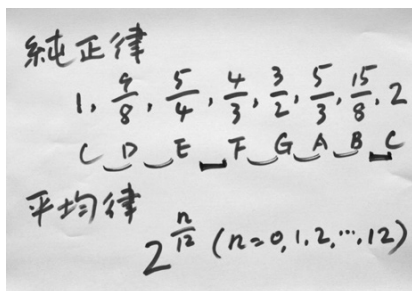 純正律
1, 9/8, 5/4, 4/3, 3/2, 5/3, 15/8, 2
C D E F G A B C
平均律
2^(n/12) (n=0,1,2,…,12)